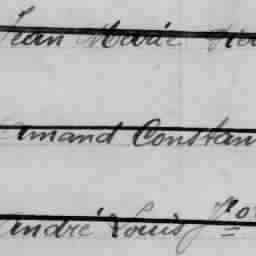 Jean Marie
Amand Constan
André Louis